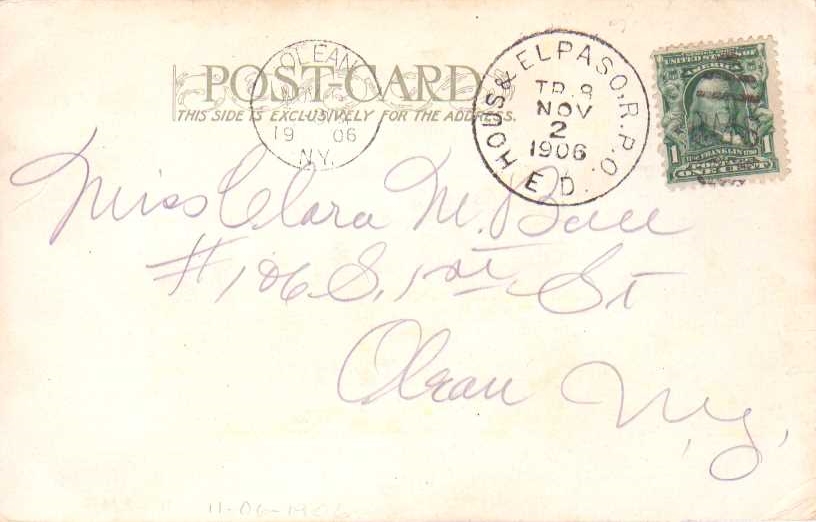 POST-CARD
THIS SIDE IS EXCLUSIVELY FOR THE ADDRESS.
OLEAN
19 06
N.Y.
HOUS & EL PASO, R.P.O.
TR. 8
NOV
2
1906
E D.
UNITED STATES OF AMERICA
1 FRANKLIN 1
POSTAGE
ONE CENT
Miss Clara M. Ball
#106 S. 1st St
Olean N.Y.
11-06-1906